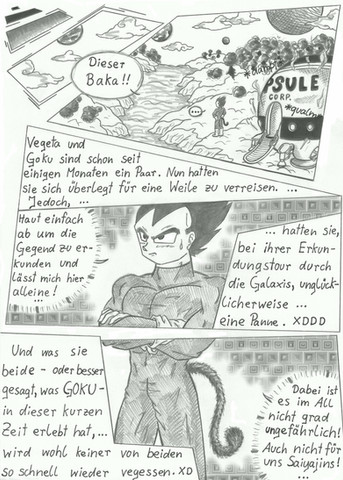 Dieser
Baka!!
*dampf*
PSULE
CORP.
*qualm*
...
Vegeta und
Goku sind schon seit
einigen Monaten ein Paar. Nun hatten
sie sich überlegt für eine Weile zu verreisen. ...
Jedoch, ...
Haut einfach
ab um die
Gegend zu er-
kunden und
lässt mich hier
alleine!
...
... hatten sie,
bei ihrer Erkun-
dungstour durch
die Galaxis, unglück-
licherweise ...
eine Panne. XDDD
Und was sie
beide - oder besser
gesagt, was GOKU -
in dieser kurzen
Zeit erlebt hat, ...
wird wohl keiner von beiden
so schnell wieder vegessen. XD
Dabei ist
es im All
nicht grad
ungefährlich!
Auch nicht für
uns Saiyajins!
...